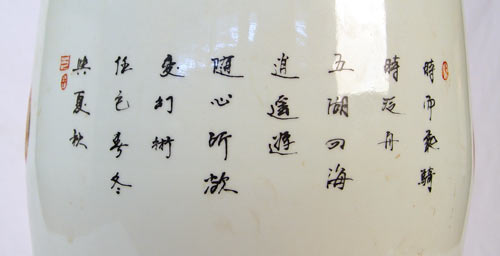 時而乘騎
時泛舟
五湖四海
逍遙遊
隨心所欲
变幻術
任它春冬
與夏秋